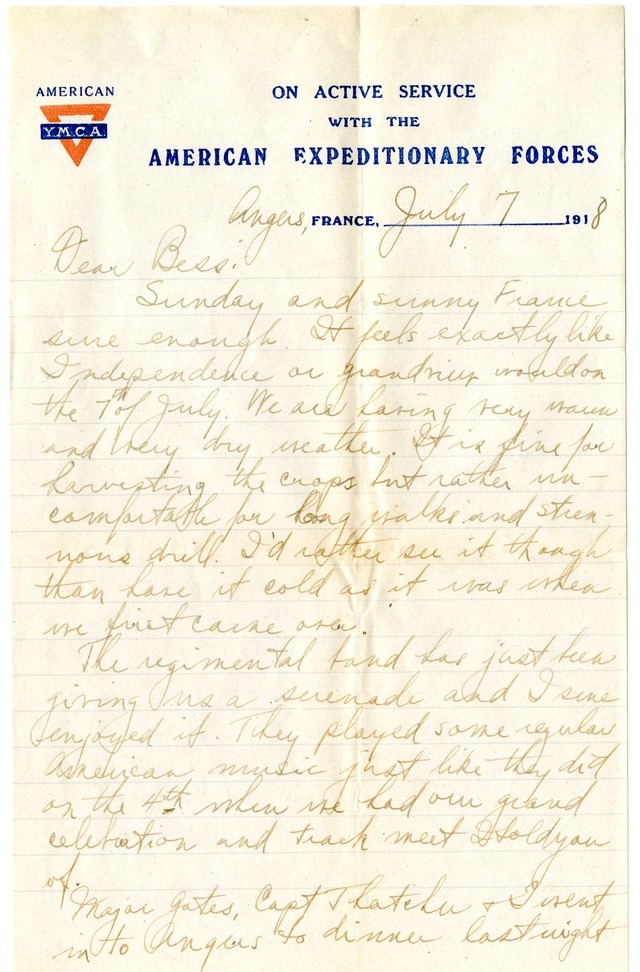 AMERICAN
YMCA
ON ACTIVE SERVICE
WITH THE
AMERICAN EXPEDITIONARY FORCES
Angers, FRANCE, July 7 1918
Dear Bess:
Sunday and sunny France
sure enough. It feels exactly like
Independence or grandview would on
the 7th of July. We are having very warm
and very dry weather. It is fine for
harvesting the crops but rather un-
comfortable for long walks and stren-
uous drill. I'd rather see it though
than have it cold as it was when
we first came over.
The regimental band has just been
giving us a serenade and I sure
enjoyed it. They played some regular
American music just like they did
on the 4th when we had our grand
celebration and track meet I told you
of.
Major Gates, Capt Thatcher + I went
in to Angers to dinner last night